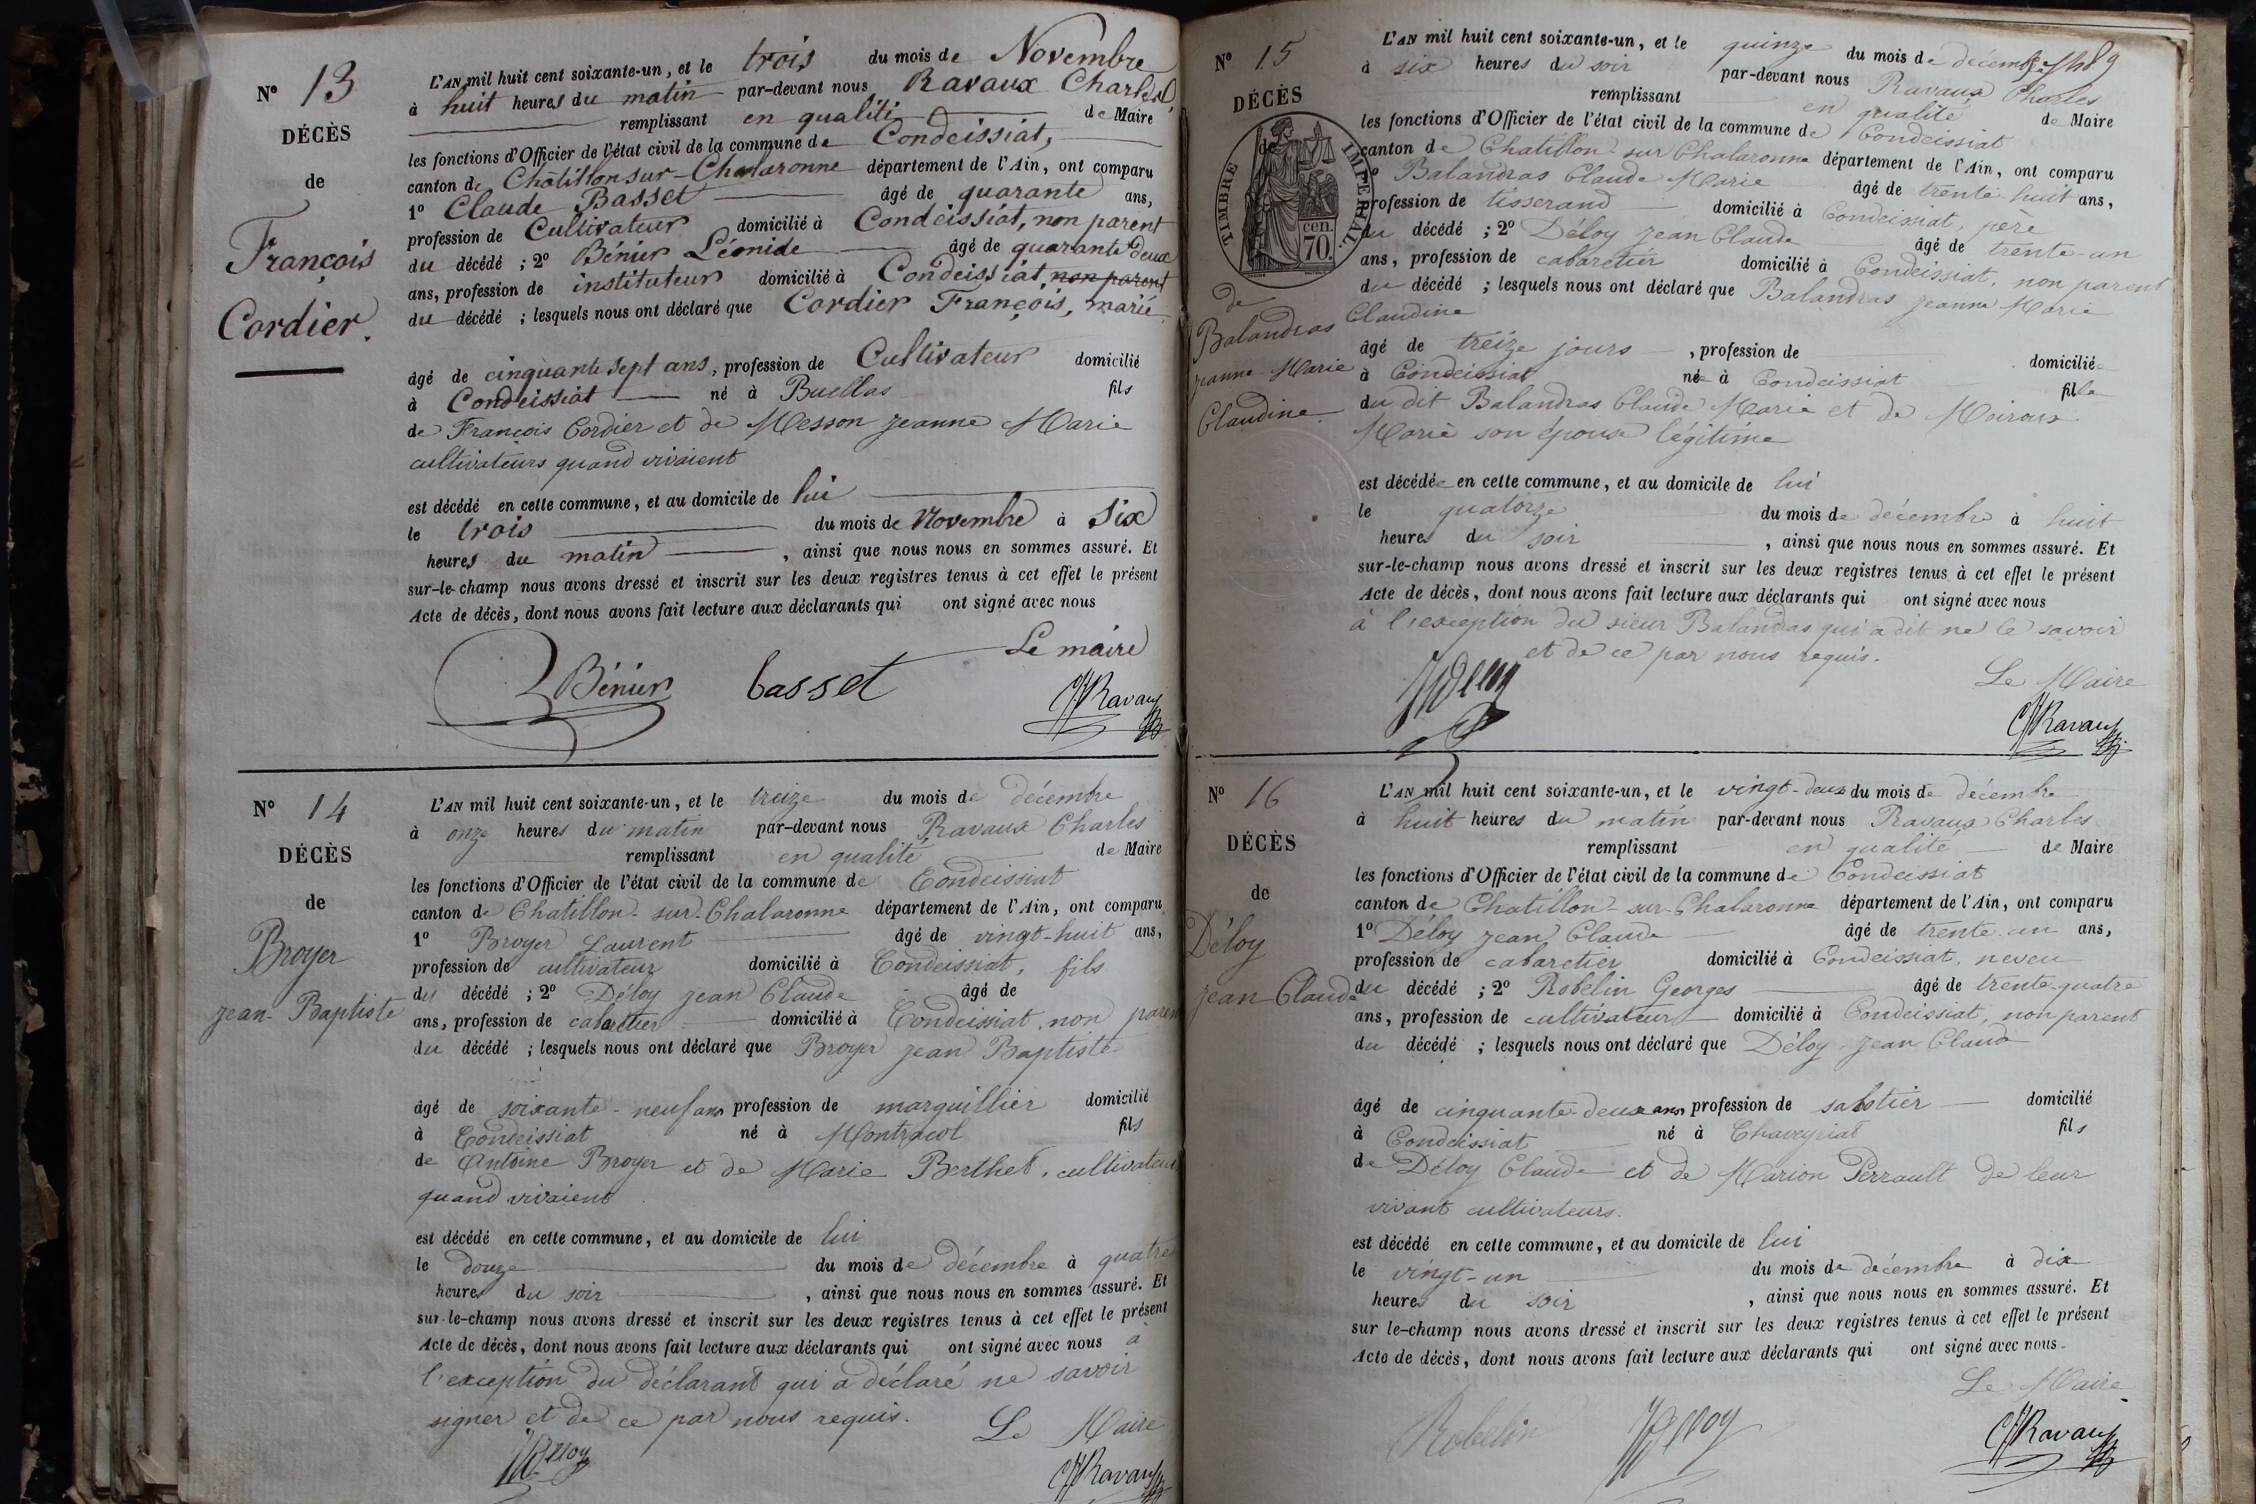 Nº 13
DÉCÈS
de
François
Cordier.
L'AN mil huit cent soixante-un, et le trois du mois de Novembre
à huit heures du matin par-devant nous Ravaux Charles,
remplissant en qualité de Maire
les fonctions d'Officier de l'état civil de la commune de Condeissiat,
canton de Châtillon sur-Chalaronne département de l'Ain, ont comparu
1º Claude Basset âgé de quarante ans,
profession de Cultivateur domicilié à Condeissiat, non parent
du décédé ; 2º Bénier Léonide âgé de quarante deux
ans, profession de instituteur domicilié à Condeissiat, non parent
du décédé ; lesquels nous ont déclaré que Cordier François, marié
âgé de cinquante sept ans, profession de Cultivateur domicilié
à Condeissiat né à Buellas fils
de François Cordier et de Messon Jeanne Marie
cultivateurs quand vivaient
est décédé en cette commune, et au domicile de lui
le trois du mois de Novembre à Six
heures du matin , ainsi que nous nous en sommes assuré. Et
sur-le-champ nous avons dressé et inscrit sur les deux registres tenus à cet effet le présent
Acte de décès, dont nous avons fait lecture aux déclarants qui ont signé avec nous
Le maire
Bénier basset Ravaux
Nº 14
DÉCÈS
de
Broyer
Jean-Baptiste
L'AN mil huit cent soixante-un, et le treize du mois de décembre
à onze heures du matin par-devant nous Ravaux Charles
remplissant en qualité de Maire
les fonctions d'Officier de l'état civil de la commune de Condeissiat
canton de Chatillon-sur-Chalaronne département de l'Ain, ont comparu
1º Broyer Laurent âgé de vingt-huit ans,
profession de cultivateur domicilié à Condeissiat, fils
du décédé ; 2º Déloy Jean Claude âgé de
ans, profession de cabaretier domicilié à Condeissiat, non parent
du décédé ; lesquels nous ont déclaré que Broyer Jean Baptiste
âgé de soixante-neuf ans profession de marguillier domicilié
à Condeissiat né à Montracol fils
de Antoine Broyer et de Marie Berthet, cultivateurs
quand vivaient
est décédé en cette commune, et au domicile de lui
le douze du mois de décembre à quatre
heures du soir , ainsi que nous nous en sommes assuré. Et
sur-le-champ nous avons dressé et inscrit sur les deux registres tenus à cet effet le présent
Acte de décès, dont nous avons fait lecture aux déclarants qui ont signé avec nous à
l'exception du déclarant qui a déclaré ne savoir
signer et de ce par nous requis.
Le Maire
Déloy Ravaux
Nº 15
DÉCÈS
de
TIMBRE IMPERIAL.
cen.
70.
de
Balandras
Jeanne-Marie
Claudine
L'AN mil huit cent soixante-un, et le quinze du mois de décembre
à six heures du soir par-devant nous Ravaux Charles
remplissant en qualité de Maire
les fonctions d'Officier de l'état civil de la commune de Condeissiat
canton de Chatillon sur Chalaronne département de l'Ain, ont comparu
1º Balandras Claude Marie âgé de trente-huit ans,
profession de tisserand domicilié à Condeissiat, père
du décédé ; 2º Déloy Jean Claude âgé de trente-un
ans, profession de cabaretier domicilié à Condeissiat, non parent
du décédé ; lesquels nous ont déclaré que Balandras Jeanne Marie
Claudine
âgé de treize jours , profession de domiciliée
à Condeissiat née à Condeissiat fille
du dit Balandras Claude Marie et de Moiroux
Marie son épouse légitime
est décédée en cette commune, et au domicile de lui
le quatorze du mois de décembre à huit
heures du soir , ainsi que nous nous en sommes assuré. Et
sur-le-champ nous avons dressé et inscrit sur les deux registres tenus à cet effet le présent
Acte de décès, dont nous avons fait lecture aux déclarants qui ont signé avec nous
à l'exception du sieur Balandras qui a dit ne le savoir
et de ce par nous requis.
Le Maire
Déloy Ravaux
Nº 16
DÉCÈS
de
Déloy
Jean-Claude
L'AN mil huit cent soixante-un, et le vingt-deux du mois de décembre
à huit heures du matin par-devant nous Ravaux Charles
remplissant en qualité de Maire
les fonctions d'Officier de l'état civil de la commune de Condeissiat
canton de Chatillon-sur-Chalaronne département de l'Ain, ont comparu
1º Déloy Jean Claude âgé de trente-un ans,
profession de cabaretier domicilié à Condeissiat, neveu
du décédé ; 2º Robelin Georges âgé de trente-quatre
ans, profession de cultivateur domicilié à Condeissiat, non parent
du décédé ; lesquels nous ont déclaré que Déloy Jean Claude
âgé de cinquante-deux ans profession de sabotier domicilié
à Condeissiat né à Chaveyriat fils
de Déloy Claude et de Marion Perrault de leur
vivant cultivateurs.
est décédé en cette commune, et au domicile de lui
le vingt-un du mois de décembre à dix
heures du soir , ainsi que nous nous en sommes assuré. Et
sur le-champ nous avons dressé et inscrit sur les deux registres tenus à cet effet le présent
Acte de décès, dont nous avons fait lecture aux déclarants qui ont signé avec nous.
Le Maire
Robelin Déloy Ravaux